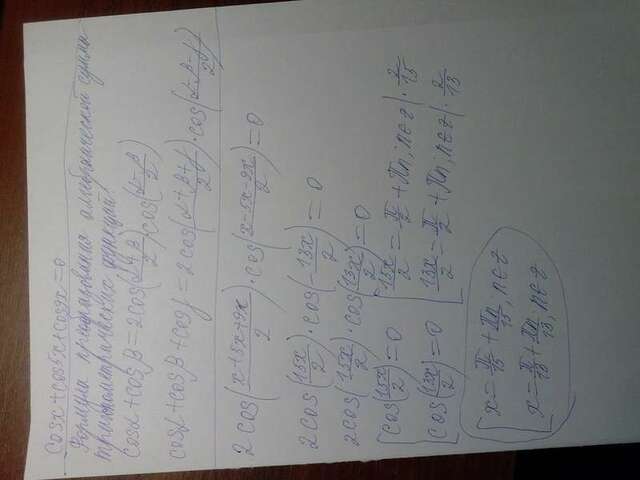 cosx + cos5x + cos9x = 0
Формула преобразования алгебраической суммы
тригонометрических функций:
cosα + cosβ = 2cos(α+β/2)cos(α-β/2)
cosα + cosβ + cosγ = 2cos(α+β+γ/2)·cos(α-β-γ/2)
2cos(x+5x+9x/2)·cos(x-5x-9x/2)=0
2cos(15x/2)·cos(-13x/2)=0
2cos(15x/2)·cos(13x/2)=0
[cos(15x/2)=0 [15x/2=π/2+πn; n∈z |·2/15
[cos(13x/2)=0 [13x/2=π/2+πn; n∈z |·2/13
[x=π/15+2πn/15; n∈z
[x=π/13+2πn/13; n∈z